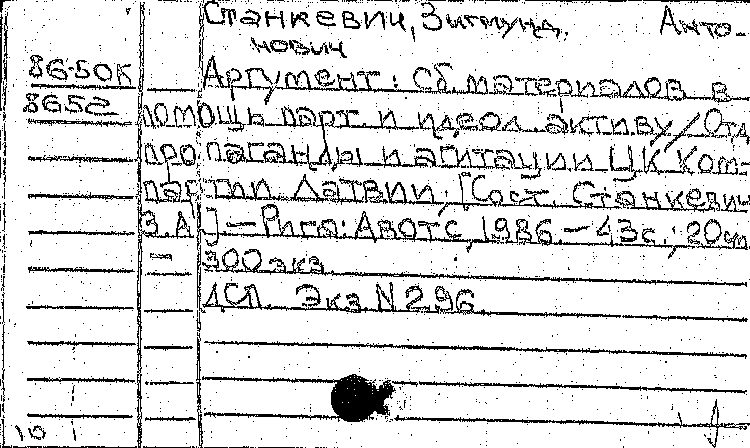 Станкевич, Зигмунд Анто-
нович
86-50к Аргумент: Сб. материалов в
8652 помощь парт. и идеол. активу / Отд.
пропаганды и агитации ЦК Ком-
партии Латвии; [Сост. Станкевич
З.А.] — Рига: Авотс, 1986. — 43с.; 20см
— 300 экз.
ДСП. Экз. N 296.
10